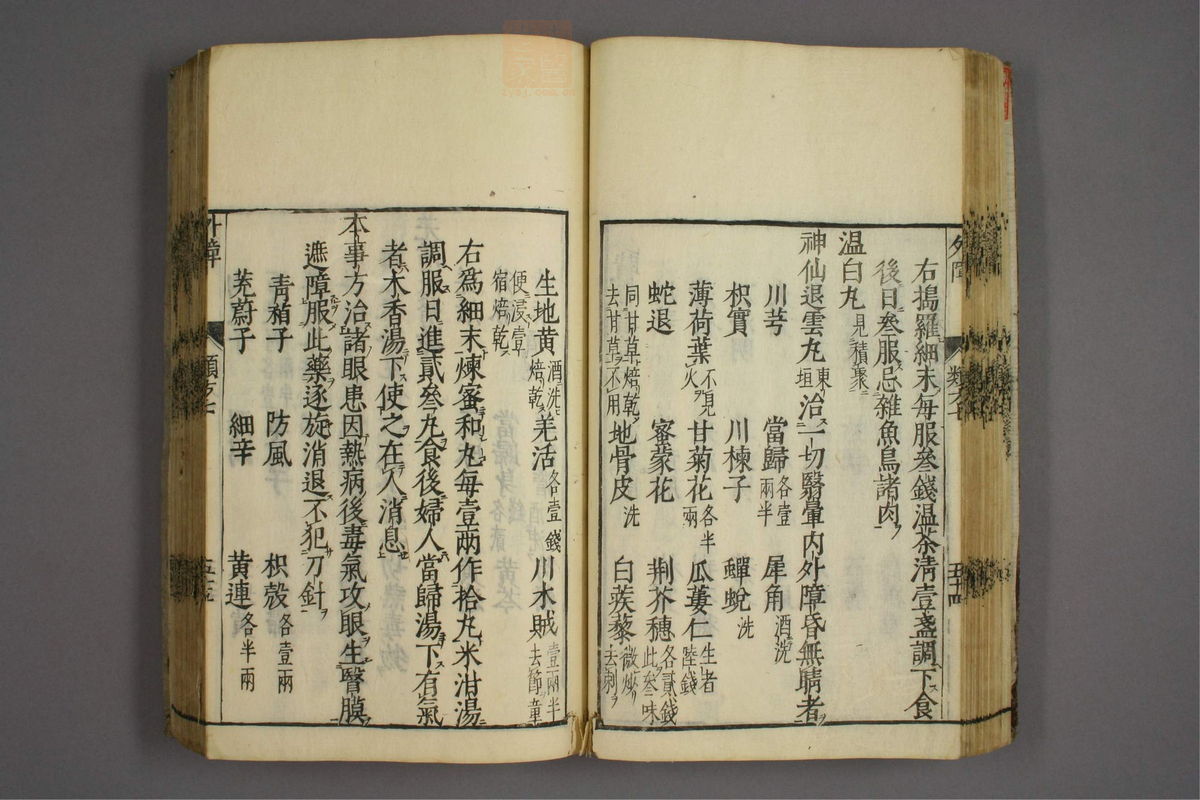 右搗羅細末每服叄錢溫茶清壹盞調下食
後日叄服忌雜魚鳥諸肉
溫白丸見積聚
神仙退雲丸東垣治一切醫暈內外障昏無睛者
川芎 當歸各壹兩半 犀角酒洗
枳實 川楝子 蟬蛻洗
薄荷葉不見火 甘菊花各半兩 瓜蔞仁生者陸錢
蛇退 蜜蒙花 荆芥穗各貳錢此叄味
同甘草焙乾去甘草不用 地骨皮洗 白蒺藜微炒去刺
生地黃酒洗焙乾 羌活各壹錢 川木賊壹兩半去節童
便浸壹宿焙乾
右爲細末煉蜜和丸每壹兩作拾丸米泔湯
調服日進貳叄丸食後婦人當歸湯下有氣
者木香湯下使之在人消息
本事方治諸眼患因熱病後毒氣攻眼生醫膜
遮障服此藥逐旋消退不犯刀針
靑葙子 防風 枳殼各壹兩
茺蔚子 細辛 黃連各半兩
外障
五十五